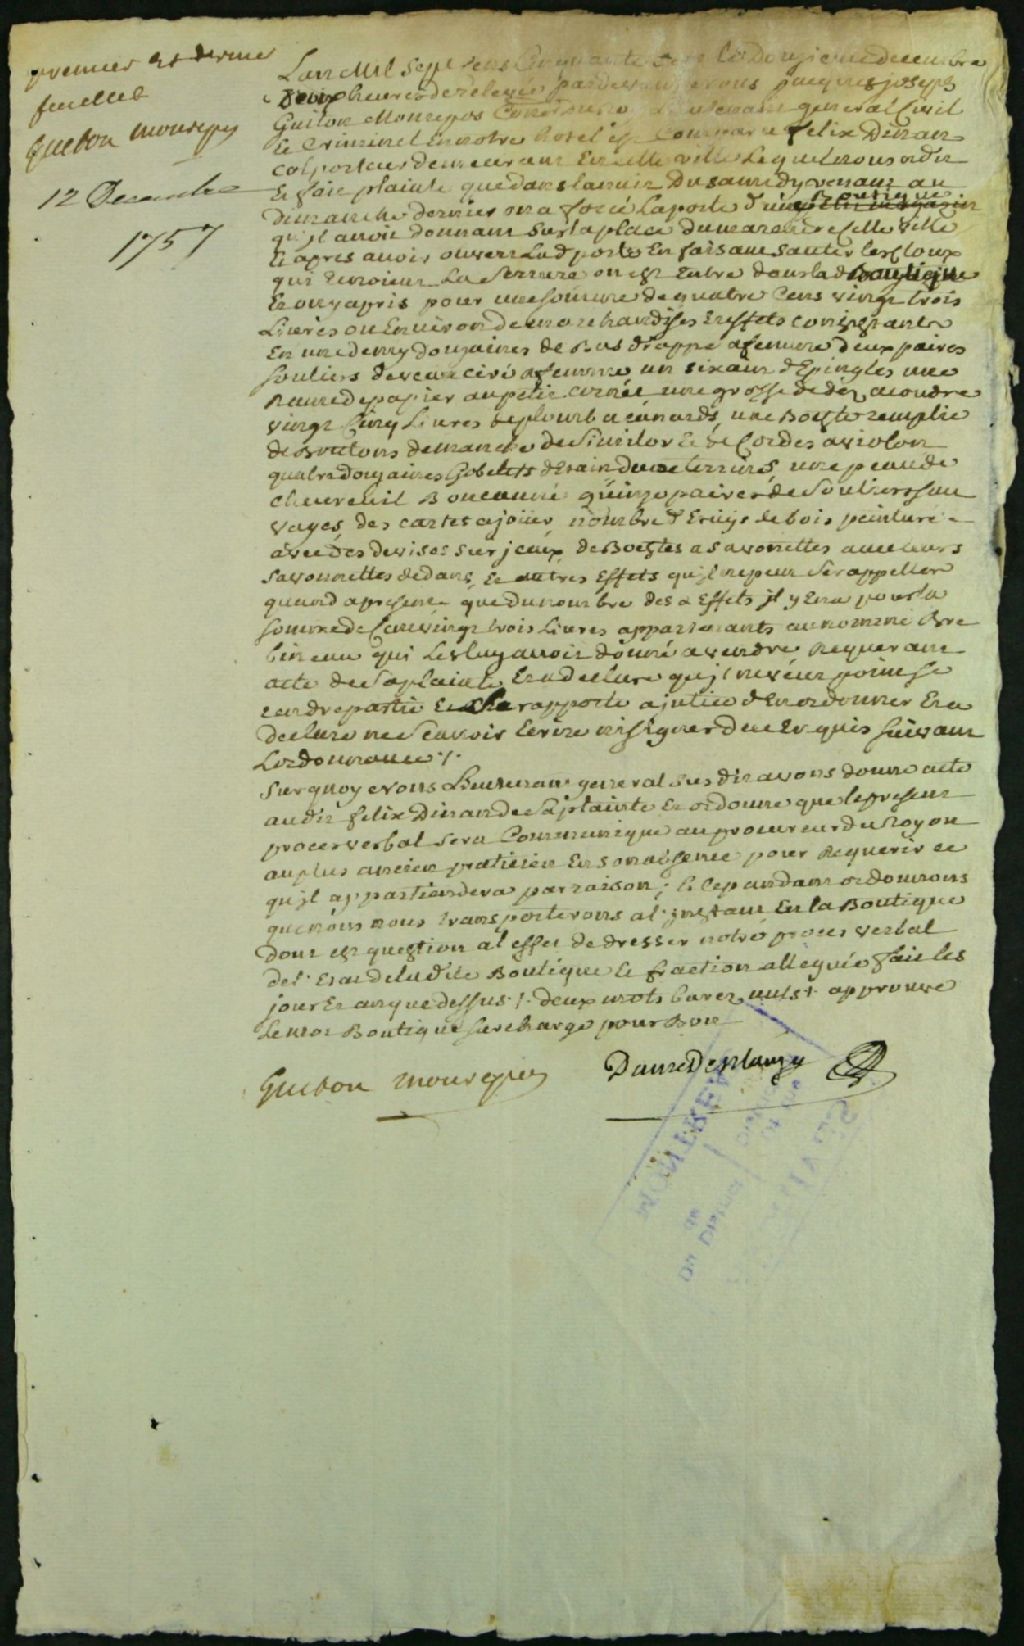 premier et dernier
feuillet
Guiton Monrepos
12 Decembre
1757
L'an Mil Sept Cens Cinquante Sept le Douzieme decembre
deux heures de relevée pardevant nous jacques joseph
Guiton Monrepos Coner du roy Lieutenant general Civil
et Criminel En notre hotel est Comparu felix Dinan
colporteur demeurant En cette ville Lequel nous a dit
Et fait plainte que dans la nuit Du samedy venant au
dimanche dernier on a forcé La porte d'une Boutique
qu'il avoit donnant sur la place du marché de cette ville
Et apres avoir ouvert Lad porte En faisant sauter les Cloux
qui tenoient La Serrure on est Entré dans lad Boutique
Et on y a pris pour une somme de quatre Cens vingt trois
Livres ou Environ de marchandises Et effets consistants
En une demy douzaines de Bas drappé a femme deux paires
souliers de veau ciré a femme un sixain d'Epingles une
Rame de papier au petit cornet une grosse de dez a coudre
vingt Cinq Livres de plomb a canards une Boiste remplie
de Boutons de manche de Similor Et de Cordes a violon
quatre douzaines Gobelets d'Etain deux terrines une peau de
chevreuil Boucanné quinze paires de Souliers sau
vages des cartes a joüer nombre d'Etuys de bois peinturé
avec des devises sur jceux des Boestes a savonettes avec leurs
savonnettes dedans Et autres Effets qu'il ne peut Se rappeller
quand a present que du nombre des d Effets jl y En a pour la
somme de Cent vingt trois Livres appartenants au nommé Bre
bineau qui Les luy avoit donné a vendre Requerant
acte de Sa plainte Et a declaré qu'jl ne veut point se
rendre partie Et S'en rapporte a justice d'En ordonner Et a
declaré ne Scavoir Ecrire ni signer de ce Enquis suivant
Lordonnance /.
Sur quoy nous Lieutenant general Susdit avons donné acte
audit felix Dinan de Sa plainte Et ordonné que le present
procès verbal sera Communiqué au procureur du Roy ou
au plus ancien praticien En son absence pour Requerir ce
qu'jl appartiendera par raison; Et cependant ordonnons
que nous nous transporterons a l'jnstant En la Boutique
dont est question a l'effet de dresser notre procès verbal
de l'Etat de ladite Boutique Et fraction alleguée fait les
jour Et an que dessus /. deux mots barez nuls /. approuvé
Le mot Boutique surchargé pour Bon
Guiton Monrepos
Danré Deblanzy
MONTREAL